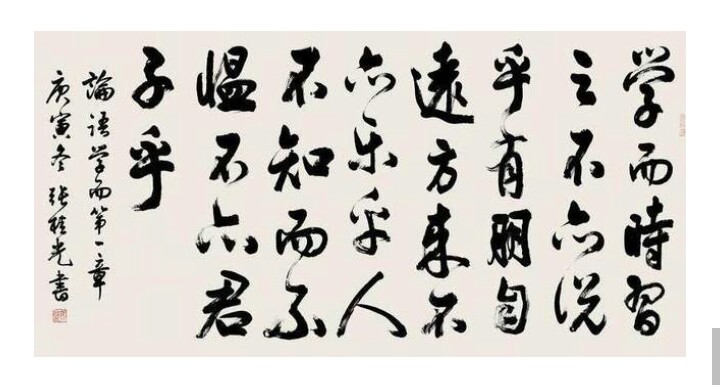 学而時習
之不亦说
乎有朋自
遠方来不
亦乐乎人
不知而不
愠不亦君
子乎
論語学而第一章
庚寅冬張桂光書